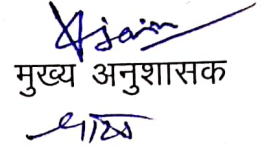 Ajain
मुख्य अनुशासक